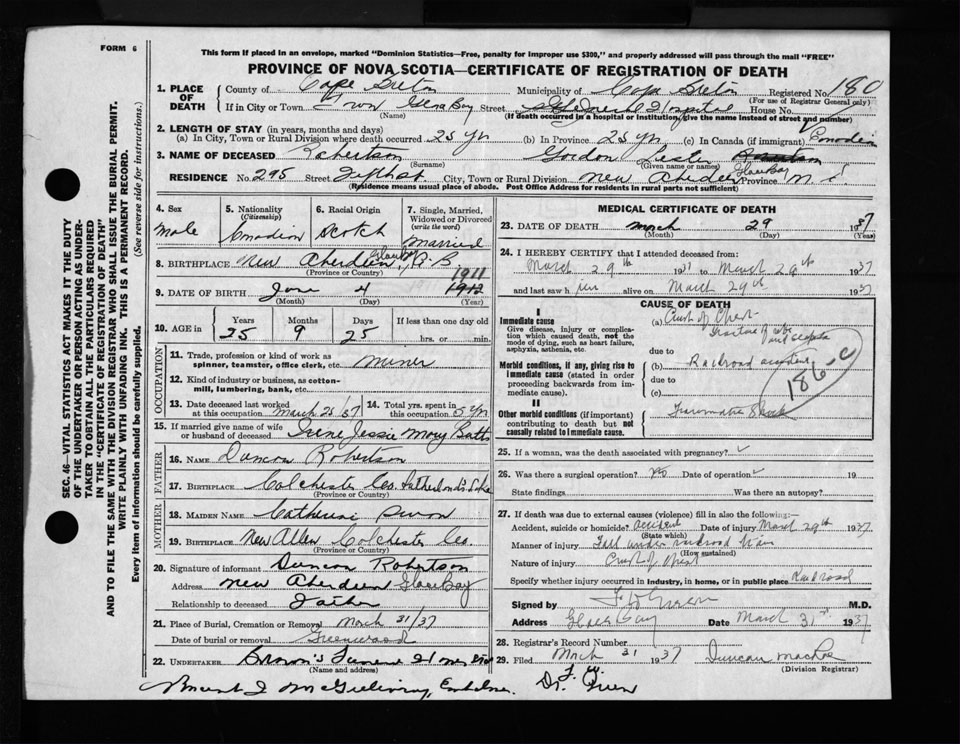 FORM 6
This form if placed in an envelope, marked "Dominion Statistics—Free, penalty for improper use $300," and properly addressed will pass through the mail "FREE"
PROVINCE OF NOVA SCOTIA—CERTIFICATE OF REGISTRATION OF DEATH
1. PLACE OF DEATH County of Cape Breton Municipality of Cape Breton Registered No. 180
(For use of Registrar General only)
If in City or Town Town Glace Bay Street General Hospital House No.
(Name) (If death occurred in a hospital or institution, give the name instead of street and number)
2. LENGTH OF STAY (in years, months and days)
(a) In City, Town or Rural Division where death occurred 25 yr (b) In Province 25 yr (c) In Canada (if immigrant) Canadian
3. NAME OF DECEASED Robertson Gordon Lester
(Surname) (Given name or names)
RESIDENCE No. 295 Street Fifth St. City, Town or Rural Division New Aberdeen Glace Bay Province N.S.
(Residence means usual place of abode. Post Office Address for residents in rural parts not sufficient)
4. Sex Male
5. Nationality (Citizenship) Canadian
6. Racial Origin Scotch
7. Single, Married, Widowed or Divorced (write the word) Married
8. BIRTHPLACE New Aberdeen Glace Bay C.B.
(Province or Country)
9. DATE OF BIRTH June 4 1911 1912
(Month) (Day) (Year)
10. AGE in Years Months Days If less than one day old
25 9 25 hrs. or min.
OCCUPATION
11. Trade, profession or kind of work as spinner, teamster, office clerk, etc. Miner
12. Kind of industry or business, as cotton-mill, lumbering, bank, etc.
13. Date deceased last worked at this occupation March 28/37
14. Total yrs. spent in this occupation 5 yr
15. If married give name of wife or husband of deceased Irene Jessie Mary Batts
FATHER
16. NAME Duncan Robertson
17. BIRTHPLACE Colchester Co.
(Province or Country)
MOTHER
18. MAIDEN NAME Catherine
19. BIRTHPLACE New Allen Colchester Co
(Province or Country)
20. Signature of informant Duncan Robertson
Address New Aberdeen Glace Bay
Relationship to deceased Father
21. Place of Burial, Cremation or Removal March 31/37
Date of burial or removal Greenwood
22. UNDERTAKER Brown's Funeral Home
(Name and address)
MEDICAL CERTIFICATE OF DEATH
23. DATE OF DEATH March 29 1937
(Month) (Day) (Year)
24. I HEREBY CERTIFY that I attended deceased from:
March 29th 1937 to March 29th 1937
and last saw him alive on March 29th 1937
CAUSE OF DEATH
I
Immediate cause
Give disease, injury or complication which caused death, not the mode of dying, such as heart failure, asphyxia, asthenia, etc.
(a) Crush of Chest
Fracture of ribs and scapula
due to
Morbid conditions, if any, giving rise to immediate cause (stated in order proceeding backwards from immediate cause).
(b) Railroad accident
due to
(c)
186-c
II
Other morbid conditions (if important) contributing to death but not causally related to immediate cause.
Traumatic Shock
25. If a woman, was the death associated with pregnancy?
26. Was there a surgical operation? No Date of operation 19
State findings Was there an autopsy?
27. If death was due to external causes (violence) fill in also the following:—
Accident, suicide or homicide? Accident Date of injury March 29th 1937
(State which)
Manner of injury Fell under railroad train
(How sustained)
Nature of injury Crush of Chest
Specify whether injury occurred in industry, in home, or in public place Railroad
Signed by M.D.
Address Glace Bay Date March 31st 1937
28. Registrar's Record Number
29. Filed March 31 1937 Duncan
(Division Registrar)
McGillivray, Embalmer. Dr. F. W.
SEC. 46—VITAL STATISTICS ACT MAKES IT THE DUTY
OF THE UNDERTAKER OR PERSON ACTING AS UNDERTAKER TO OBTAIN ALL THE PARTICULARS REQUIRED
IN THE "CERTIFICATE OF REGISTRATION OF DEATH"
AND TO FILE THE SAME WITH THE DIVISION REGISTRAR WHO SHALL ISSUE THE BURIAL PERMIT.
WRITE PLAINLY WITH UNFADING INK. THIS IS A PERMANENT RECORD.
Every item of information should be carefully supplied. (See reverse side for instructions.)